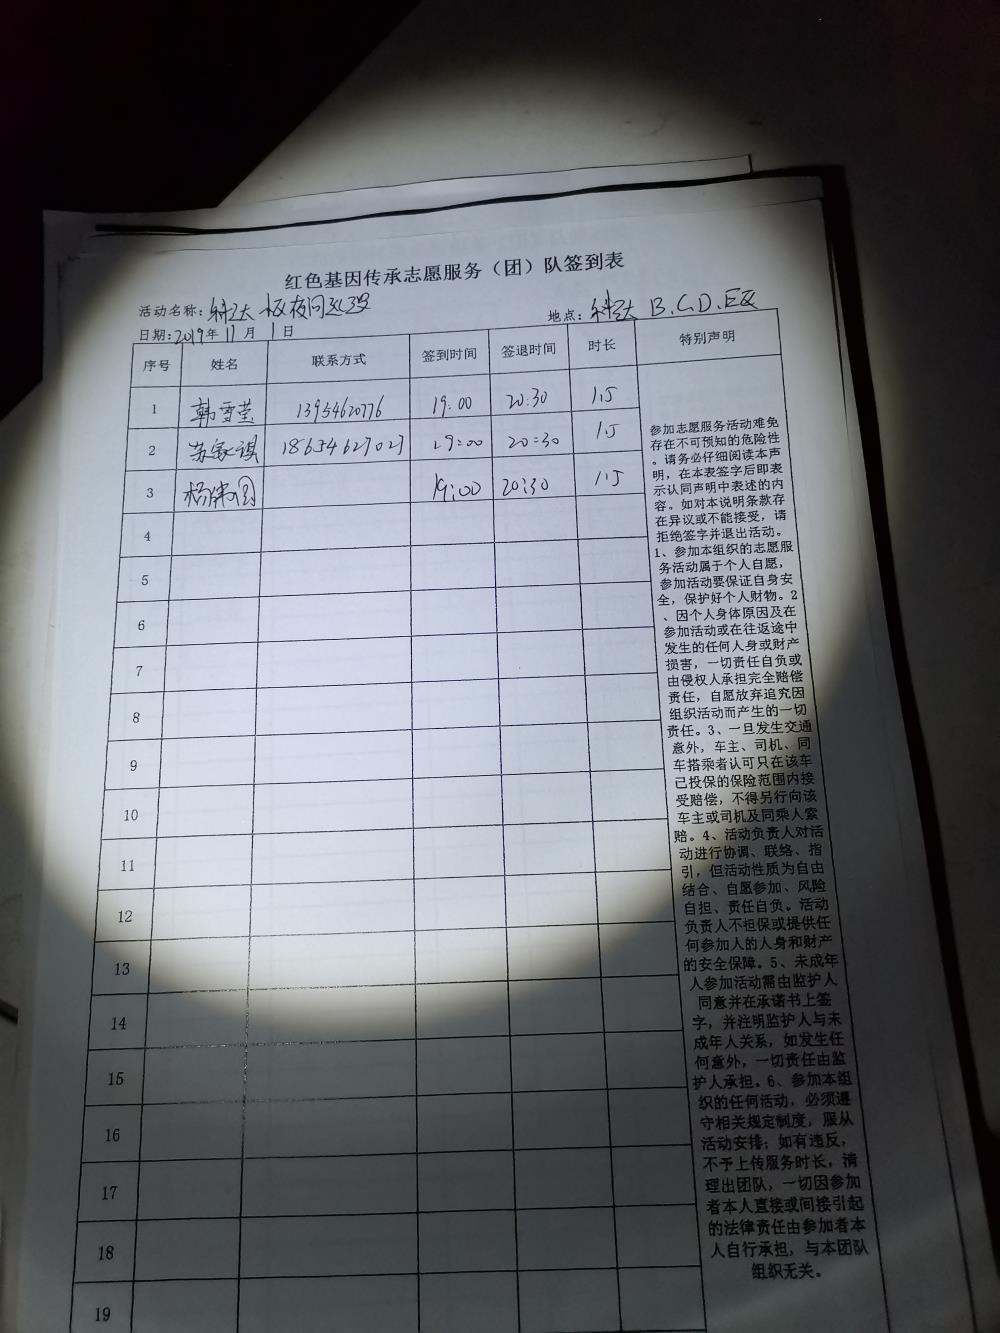 红色基因传承志愿服务（团）队签到表
活动名称：科达 夜间巡逻
日期：2019年11月1日
地点：科达 B.C.D.E区
序号 姓名 联系方式 签到时间 签退时间 时长 特别声明
1 韩雪莹 13954620776 19:00 20:30 1.5
2 苏家祺 18654627027 19:00 20:30 1.5
3 19:00 20:30 1.5
4
5
6
7
8
9
10
11
12
13
14
15
16
17
18
19
参加志愿服务活动难免
存在不可预知的危险性
。请务必仔细阅读本声
明，在本表签字后即表
示认同声明中表述的内
容。如对本说明条款存
在异议或不能接受，请
拒绝签字并退出活动。
1、参加本组织的志愿服
务活动属于个人自愿，
参加活动要保证自身安
全，保护好个人财物。2
、因个人身体原因及在
参加活动或在往返途中
发生的任何人身或财产
损害，一切责任自负或
由侵权人承担完全赔偿
责任，自愿放弃追究因
组织活动而产生的一切
责任。3、一旦发生交通
意外，车主、司机、同
车搭乘者认可只在该车
已投保的保险范围内接
受赔偿，不得另行向该
车主或司机及同乘人索
赔。4、活动负责人对活
动进行协调、联络、指
引，但活动性质为自由
结合、自愿参加、风险
自担、责任自负。活动
负责人不担保或提供任
何参加人的人身和财产
的安全保障。5、未成年
人参加活动需由监护人
同意并在承诺书上签
字，并注明监护人与未
成年人关系，如发生任
何意外，一切责任由监
护人承担。6、参加本组
织的任何活动，必须遵
守相关规定制度，服从
活动安排；如有违反，
不予上传服务时长，清
理出团队，一切因参加
者本人直接或间接引起
的法律责任由参加者本
人自行承担，与本团队
组织无关。